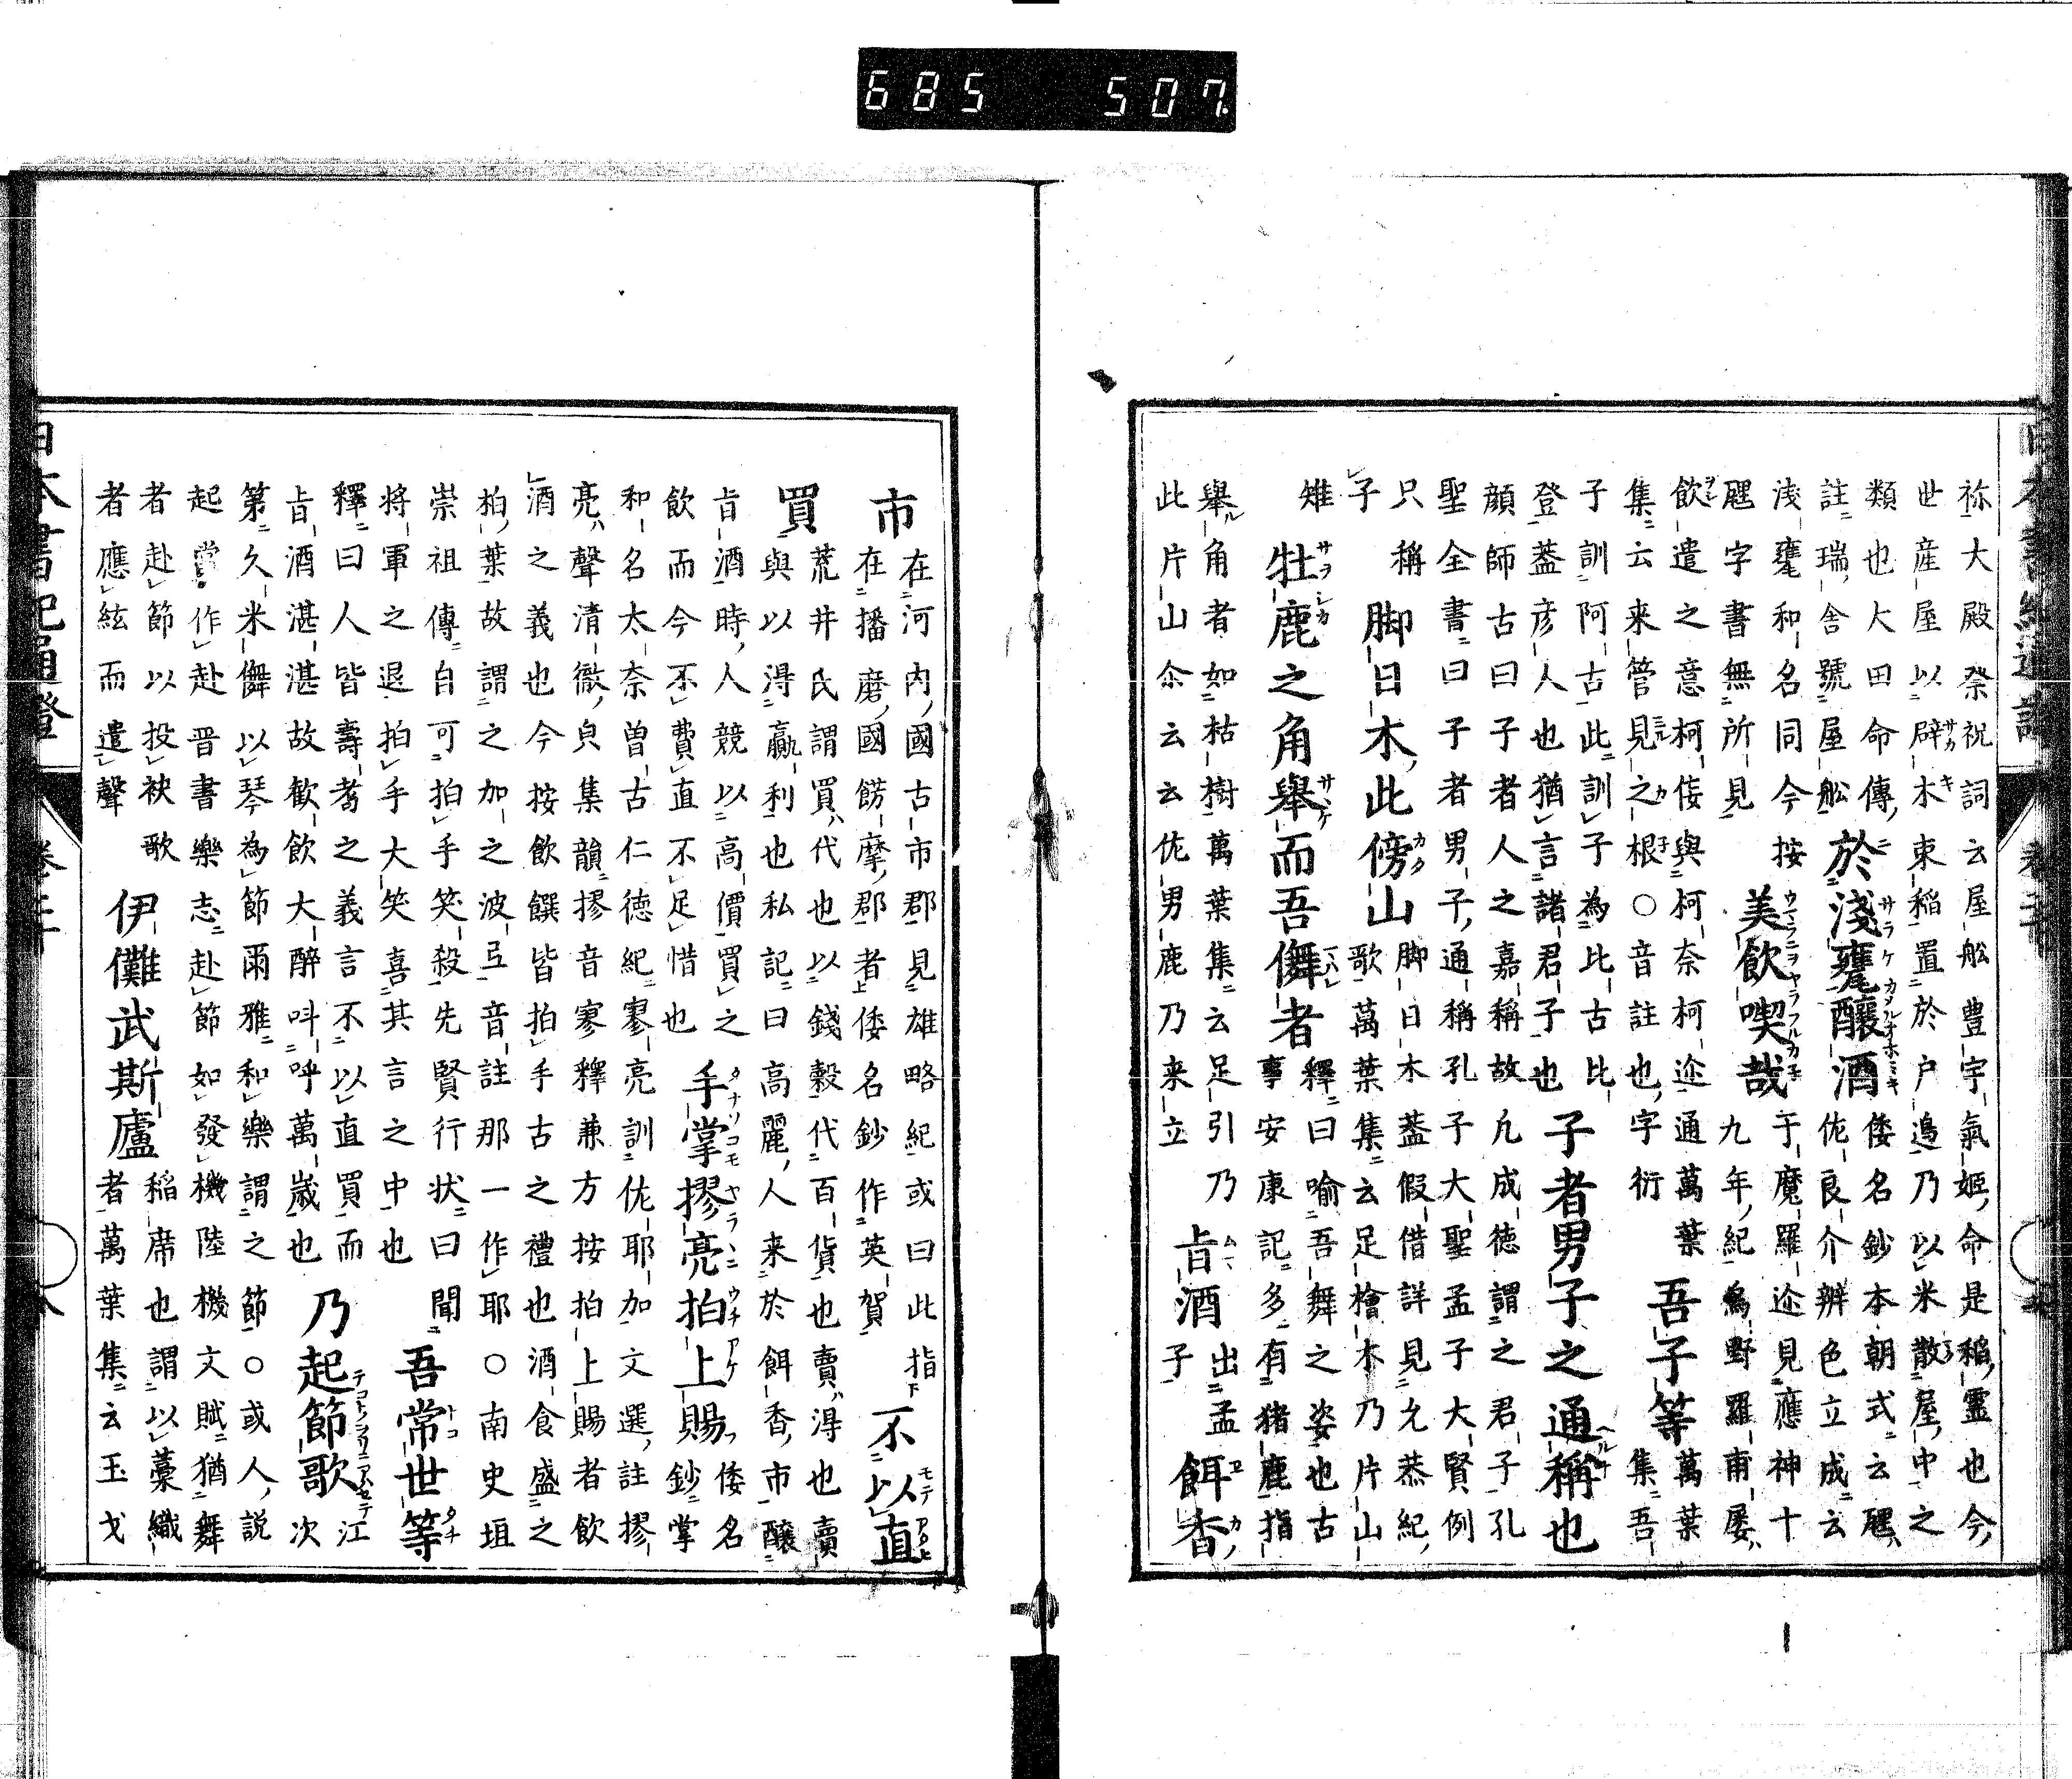 685 507
祢大殿祭祝詞云屋舩豊宇氣姬命是稲靈也今
世産屋以辟木束稲置於户邉乃以米散屋中之
類也大田命傳
於淺甕醸酒
倭名鈔本朝式云𤭖
註瑞舎號屋舩
佐良介辨色立成云
浅甕和名同今按
𤭖字書無所見
美飲喫哉
于魔羅迩見應神十
九年紀為野羅甫屡
飲遣之意柯倭與柯奈柯迩通萬葉
集云来管見之根○音註也字衍
吾子等
萬葉
集吾
子訓阿古此訓子為比古比
登蓋彦人也猶言諸君子也
子者男子之通稱也
顔師古曰子者人之嘉稱故凢成徳謂之君子孔
聖全書曰子者男子通稱孔子大聖孟子大賢例
只稱
子
脚日木此傍山
脚日木蓋假借詳見允恭紀
歌萬葉集云足檜木乃片山
雉
牡鹿之角舉而吾儛者
釋曰喻吾舞之姿也古
事安康記多有猪鹿指
舉角者如枯樹萬葉集云足引乃
此片山尒云云佐男鹿乃来立
旨酒
出孟
子
餌香
市
在河内國古市郡見雄略紀或曰此指
在播磨國餝摩郡者倭名鈔作英賀
不以直
買
荒井氏謂買代也以錢穀代百貨也賣淂也賣
與以淂贏利也私記曰高麗人来於餌香市醸
旨酒時人競以高價買之
飲而今不費直不足惜也
手掌摎亮拍上賜
倭名
鈔掌
和名太奈曽古仁徳紀寥亮訓佐耶加文選註摎
亮聲清徹皃集韻摎音寥釋兼方按拍上賜者飲
酒之義也今按飲饌皆拍手古之禮也酒食盛之
拍葉故謂之加之波弖音註那一作耶○南史垣
崇祖傳自可拍手笑殺先賢行状曰聞
将軍之退拍手大笑喜其言之中也
吾常世等
釋曰人皆壽耇之義言不以直買而
旨酒湛湛故歓飲大醉叫呼萬歳也
乃起節歌
江
次
第久米儛以琴為節爾雅和樂謂之節○或人説
起當作赴晋書樂志赴節如發機陸機文賦猶舞
者赴節以投袂歌
者應絃而遣聲
伊儺武斯廬
稲席也謂以藁織
者萬葉集云玉戈
日本書紀通證
卷二十